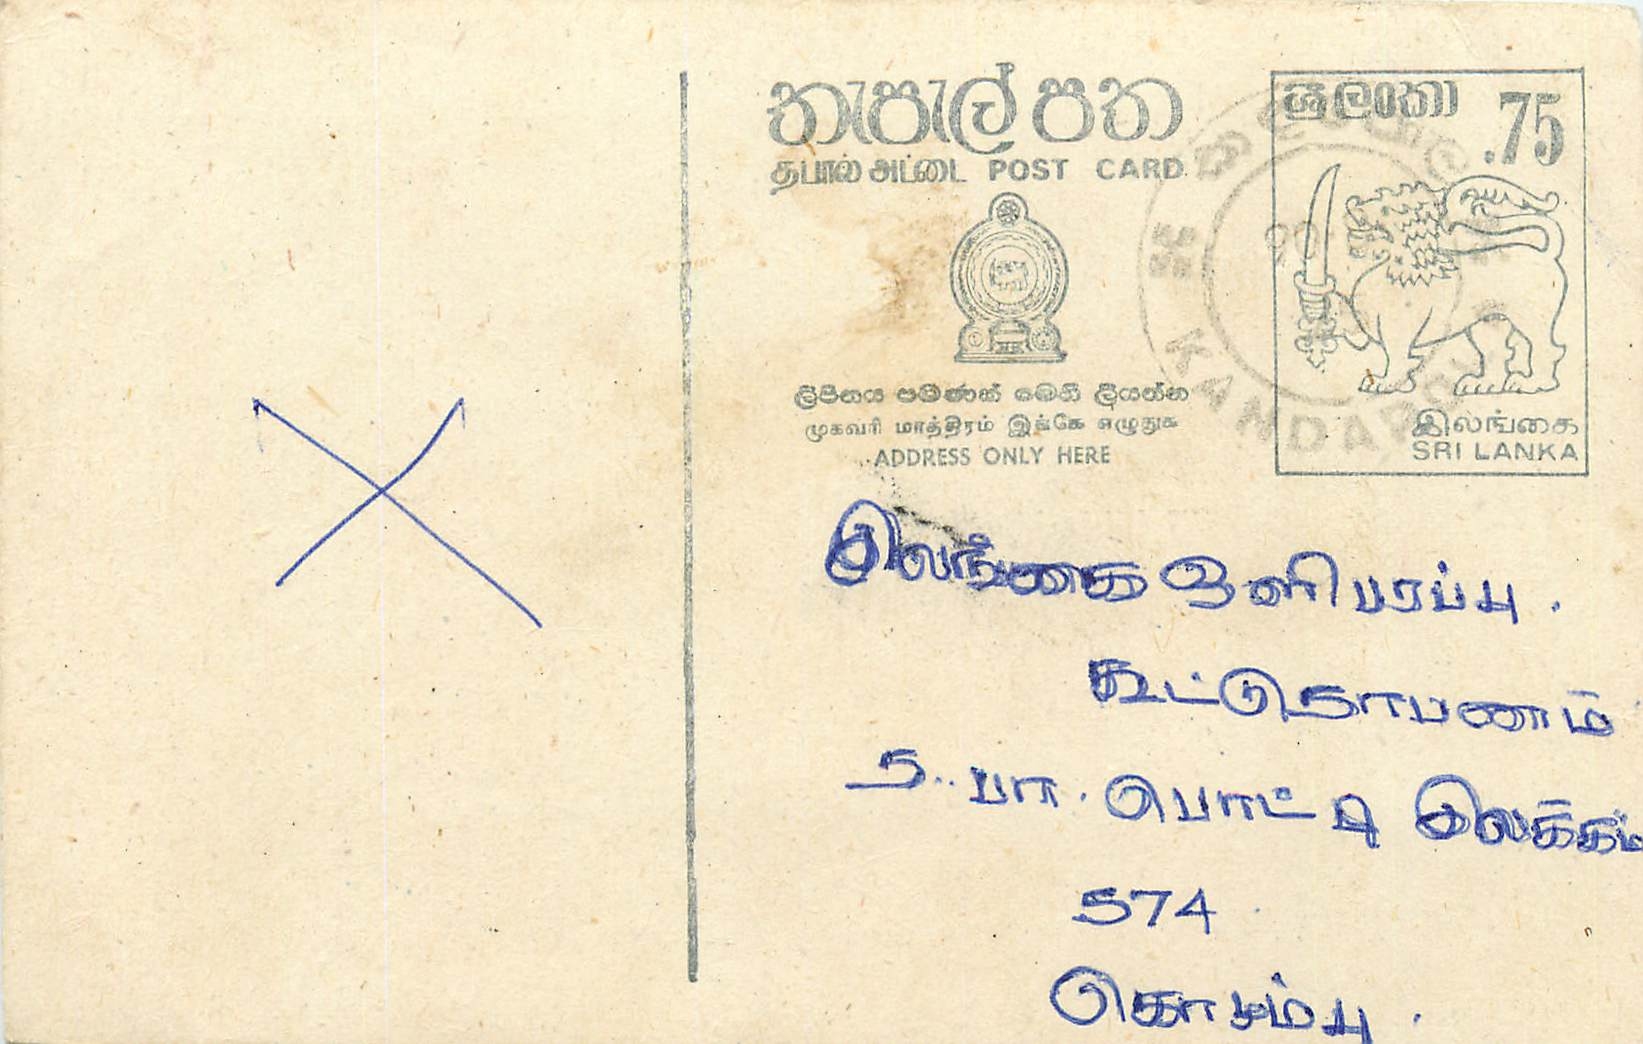 තැපැල් පත
தபால் அட்டை POST CARD
ශ්‍රී ලංකා .75
ලිපිනය පමණක් මෙහි ලියන්න
முகவரி மாத்திரம் இங்கே எழுதுக
ADDRESS ONLY HERE
இலங்கை
SRI LANKA
இலங்கை ஒளிபரப்பு .
கூட்டுதாபனம்
த.. பா. பெட்டி இலக்கம்
574
கொழும்பு .